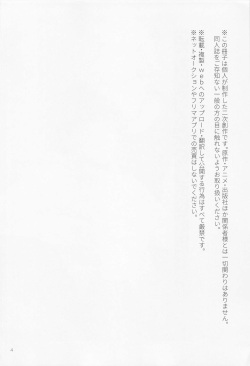 ※この冊子は個人が制作した二次創作です。原作・アニメ・出版社ほか関係者様とは一切関わりはありません。
同人誌をご存知ない一般の方の目に触れないようお取り扱いください。
※転載・複製・webへのアップロード・翻訳して公開する行為はすべて厳禁です。
※ネットオークションやフリマアプリでの売買はしないでください。